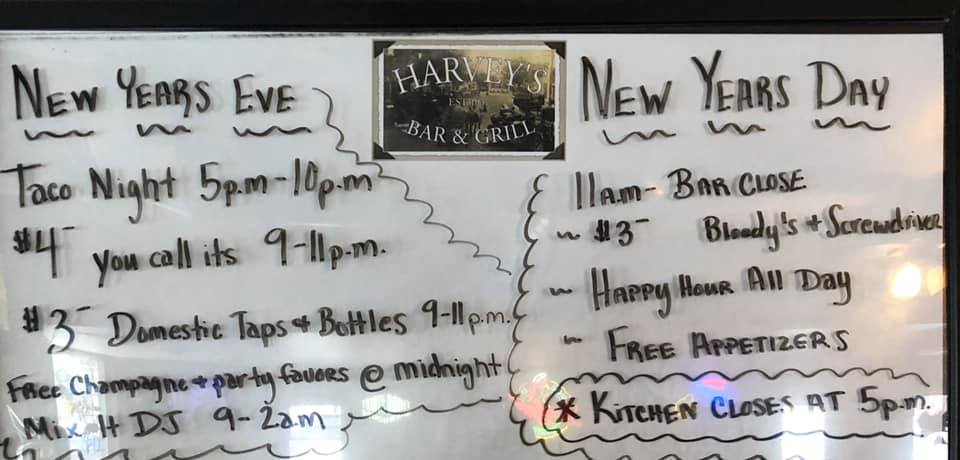 NEW YEARS EVE
Taco Night 5p.m-10p.m
$4- you call its 9-11p.m.
$3- Domestic Taps + Bottles 9-11p.m.
FREE Champagne + party favors @ midnight
Mix It DJ 9-2am
HARVEY'S
BAR & GRILL
NEW YEARS DAY
11a.m- BAR CLOSE
~ $3- Bloody's + Screwdriver
~ HAPPY HOUR All Day
~ FREE APPETIZERS
* KITCHEN CLOSES AT 5p.m.